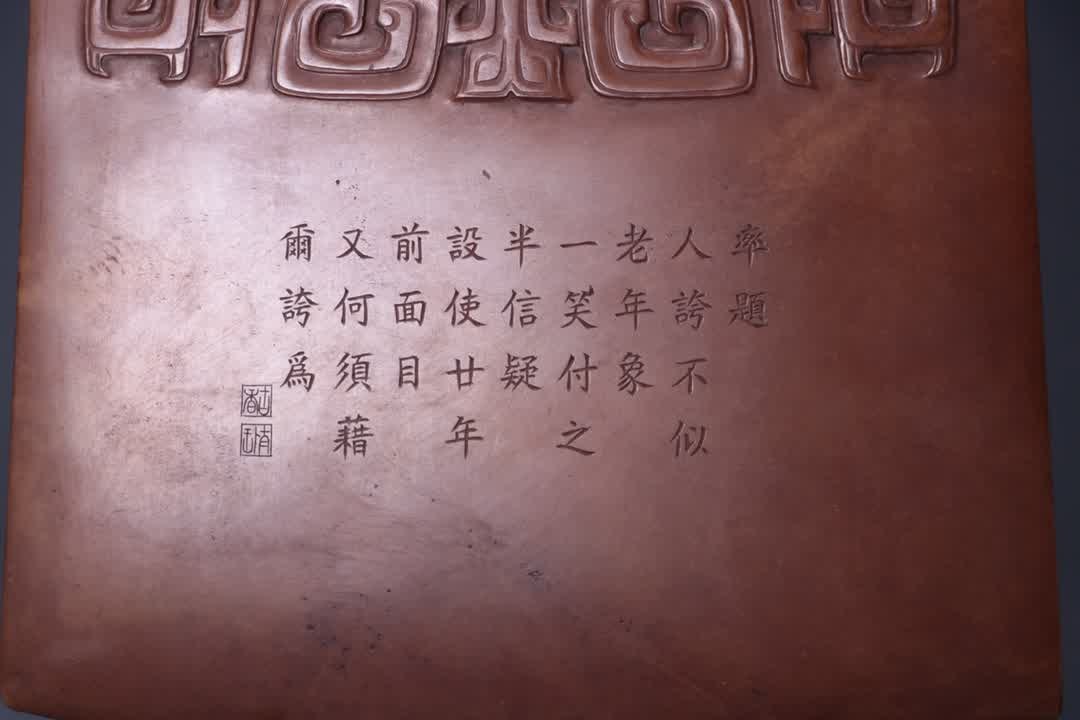 率題
人誇不似
老年象
一笑付之
半信疑
設使廿年
前面目
又何須藉
爾誇爲